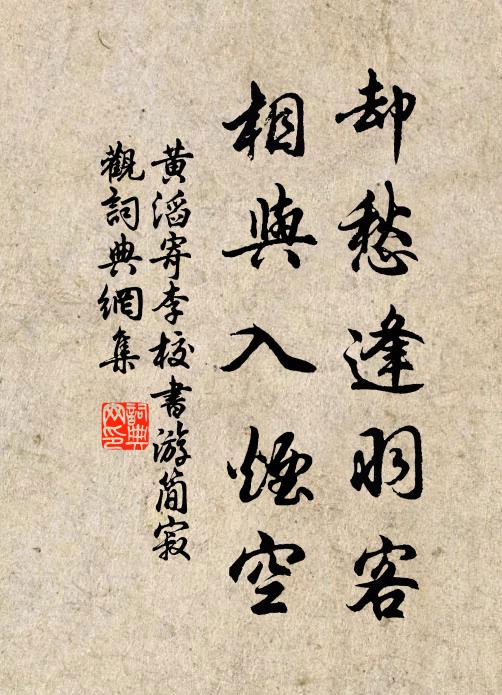 却愁逢羽客
相與入煙空
黃滔寄李校書游簡寂
觀詞典網集
詞典網印